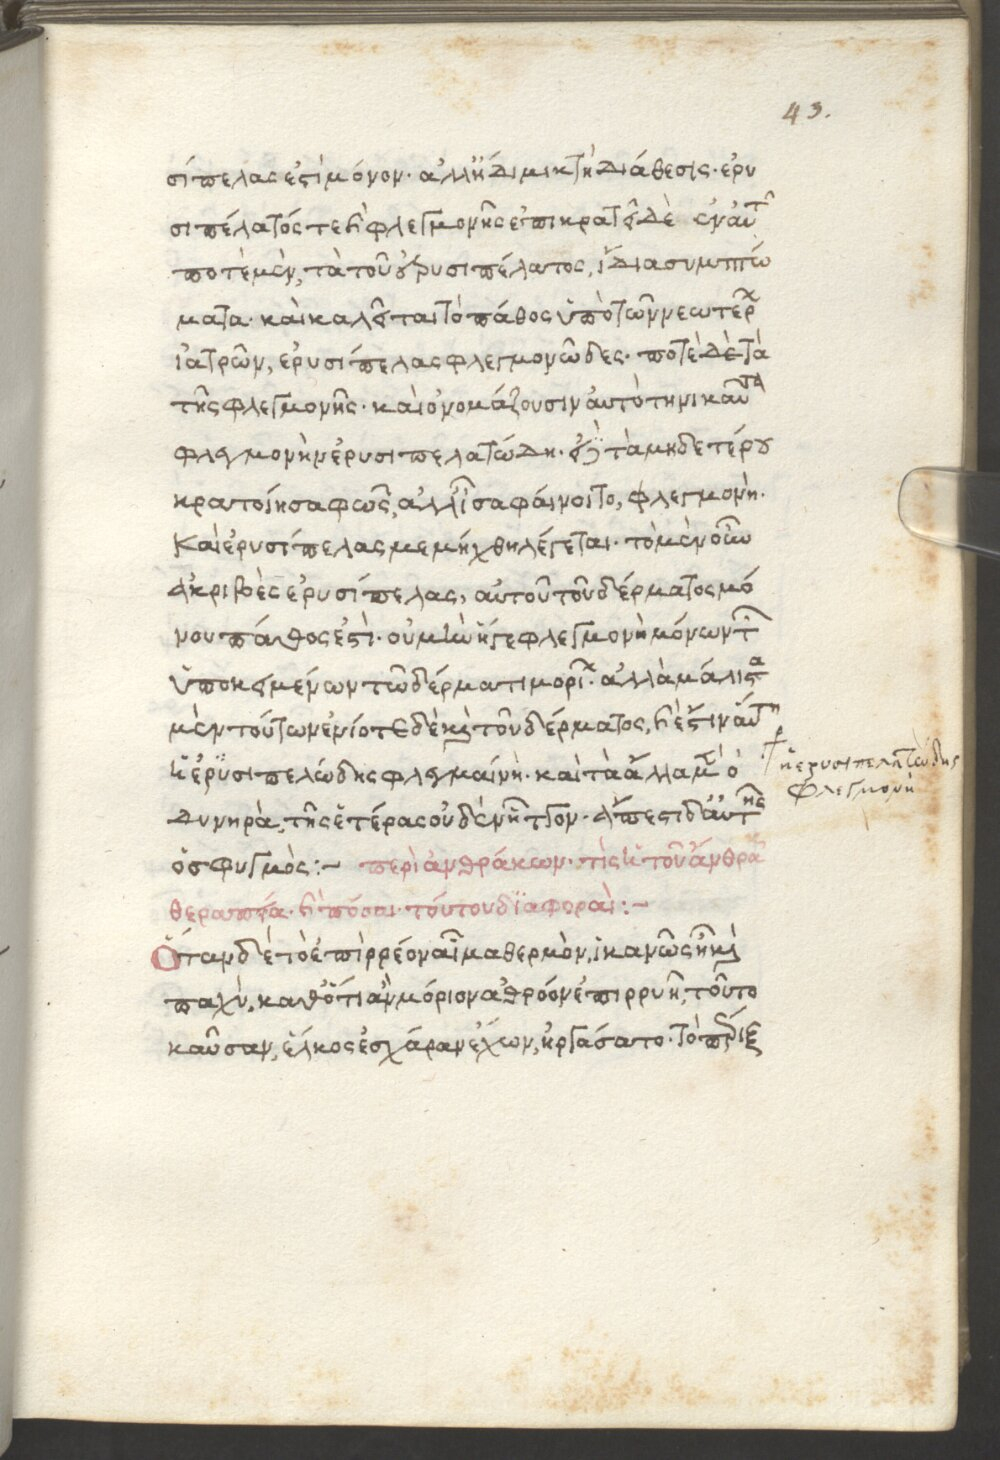 43.
σίπελας ἐστὶ μόνον· ἀλλ' ἤδη μικτὴ διάθεσις· ἐρυ
σιπέλατός τε καὶ φλεγμονῆς ἐπικρατεῖ δὲ ἐν αὐτῇ
ποτὲ μὲν, τὰ τοῦ ἐρυσιπέλατος, ἴδια συμπτώ
ματα· καὶ καλεῖται τὸ πάθος ὑπὸ τῶν νεωτέρων
ἰατρῶν, ἐρυσίπελας φλεγμονῶδες· ποτὲ δὲ τὰ
τῆς φλεγμονῆς· καὶ ὀνομάζουσιν αὐτὸ τηνικαῦτα
φλεγμονὴν ἐρυσιπελατώδη· εἰ δὲ τὰ μηδετέρου
κρατοίη σαφῶς, ἀλλ' ἴσα φαίνοιτο, φλεγμονὴ·
καὶ ἐρυσίπελας μεμίχθη λέγεται· τὸ μὲν οὖν
ἀκριβὲς ἐρυσίπελας, αὐτοῦ τοῦ δέρματος μό
νου πάθος ἐστὶ· οὐ μὴν ἥ γε φλεγμονὴ μόνων τῶν
ὑποκειμένων τῷ δέρματι μορίων· ἀλλὰ μάλιστα
μὲν τούτων ἐνίοτε δὲ καὶ τοῦ δέρματος, καὶ ἔστιν αὕτη
ἡ ἐρυσιπελώδης φλεγμαίνη· καὶ τὰ ἄλλα μὲν ὀ
δυνηρὰ, τῆς ἑτέρας οὐδὲν ἧττον· ἄπεστι δ' αὐτῆς
ὁ σφυγμὸς:– περὶ ἀνθράκων· τίς ἡ τοῦ ἄνθρακος
θεραπεία· καὶ πόσαι τούτου διαφοραὶ:–
Ὅταν δὲ τὸ ἐπιρρέον αἷμα θερμὸν, ἱκανῶς ᾖ καὶ
παχὺ, καθ' ὅτι ἂν μόριον ἀθρόον ἐπιρρυῇ, τοῦτο
καῦσαν, ἕλκος ἐσχάραν ἔχων, εἰργάσατο· τὸ πέριξ
ἡ ἐρυσιπελατώδης
φλεγμονὴ